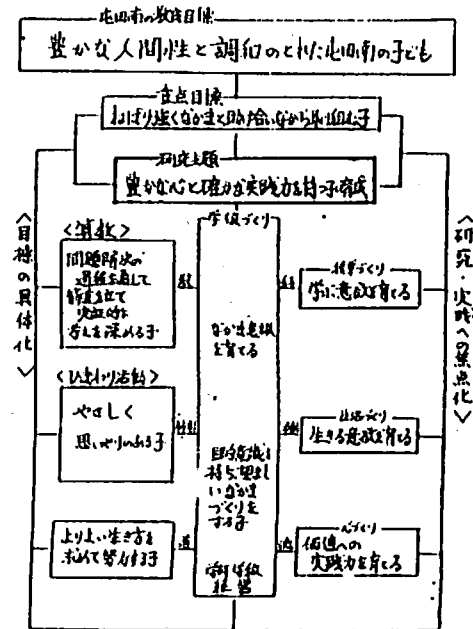 屯田南の教育目標
豊かな人間性と調和のとれた屯田南の子ども
重点目標
ねばり強くなかまと助け合いながら取り組む子
研究主題
豊かな心と確かな実践力を持つ子の育成
＜目標の具体化＞
＜算数＞
問題解決の
過程を通して
筋道立て
考えを深める子
＜ひまわり活動＞
やさしく
思いやりのある子
よりよい生き方を
求めて努力する子
学級づくり
なかま意識
を育てる
目的意識を
持ち、望まし
いなかま
づくりを
する子
学年学級
経営
授業づくり
学ぶ意欲を育てる
生活づくり
生きる意欲を育てる
心づくり
価値への
実践力を育てる
＜研究・実践への焦点化＞